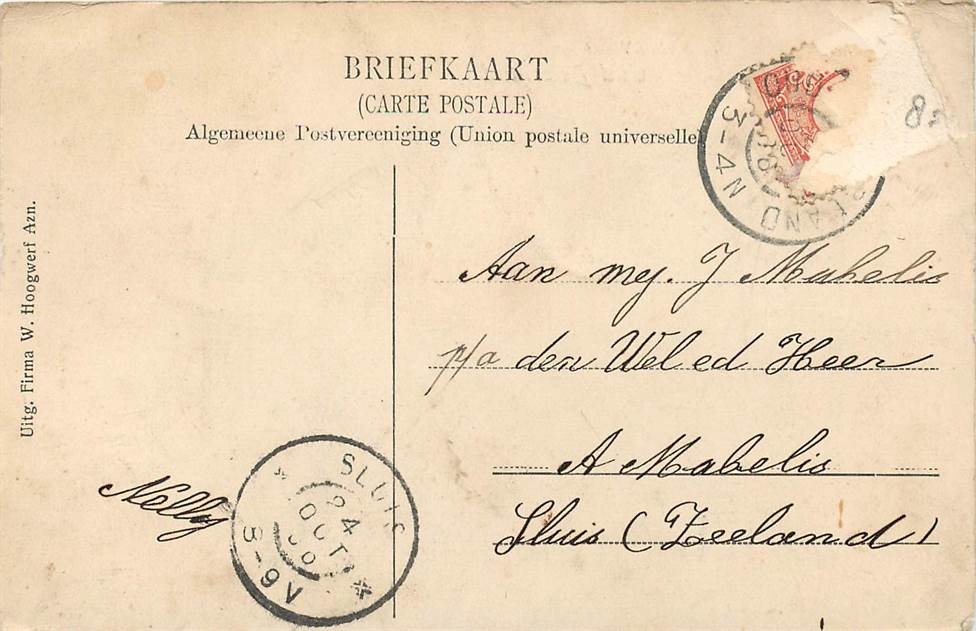 BRIEFKAART
(CARTE POSTALE)
Algemeene Postvereeniging (Union postale universelle
3-4N
LAND
82
Aan mej. J Mabelis
p/a den Weled Heer
A Mabelis
Sluis (Zeeland)
Nelly
SLUIS
24
OCT
8-9V
Uitg. Firma W. Hoogwerf Azn.